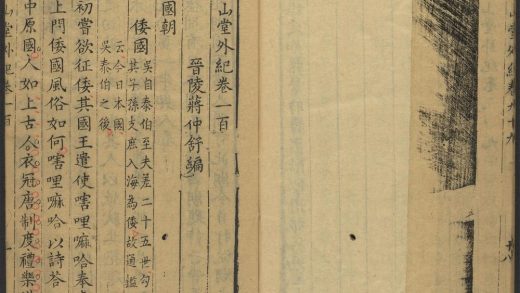 山堂外紀卷九十九
山堂外紀卷一百
晉陵蔣仲舒編
國朝
倭國
吳自泰伯至夫差二十五世勾
其子孫支庶入海為倭故通鑑
云今日本國
吳泰伯之後
初嘗欲征倭其國王遣使嗐哩嘛哈奉
上問倭國風俗如何嗐哩嘛哈以詩答
中原國人如上古人衣冠唐制度禮樂
堂外紀卷一百